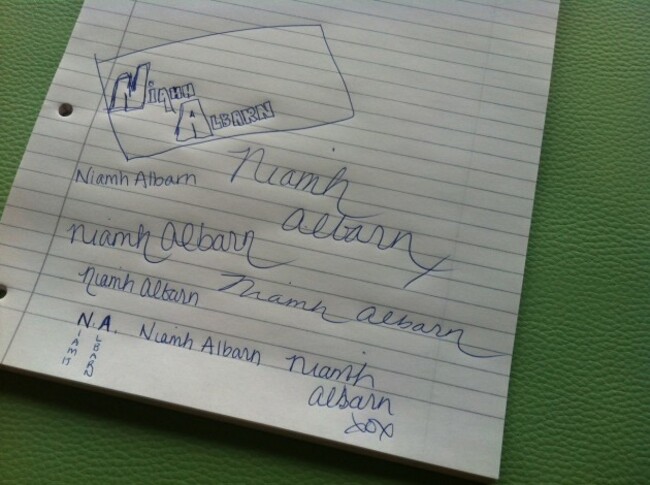 Niamh
Albarn
Niamh Albarn
Niamh
Albarn
Niamh Albarn
Niamh Albarn
Niamh Albarn
N.A.
Niamh Albarn
Niamh
Albarn
xox